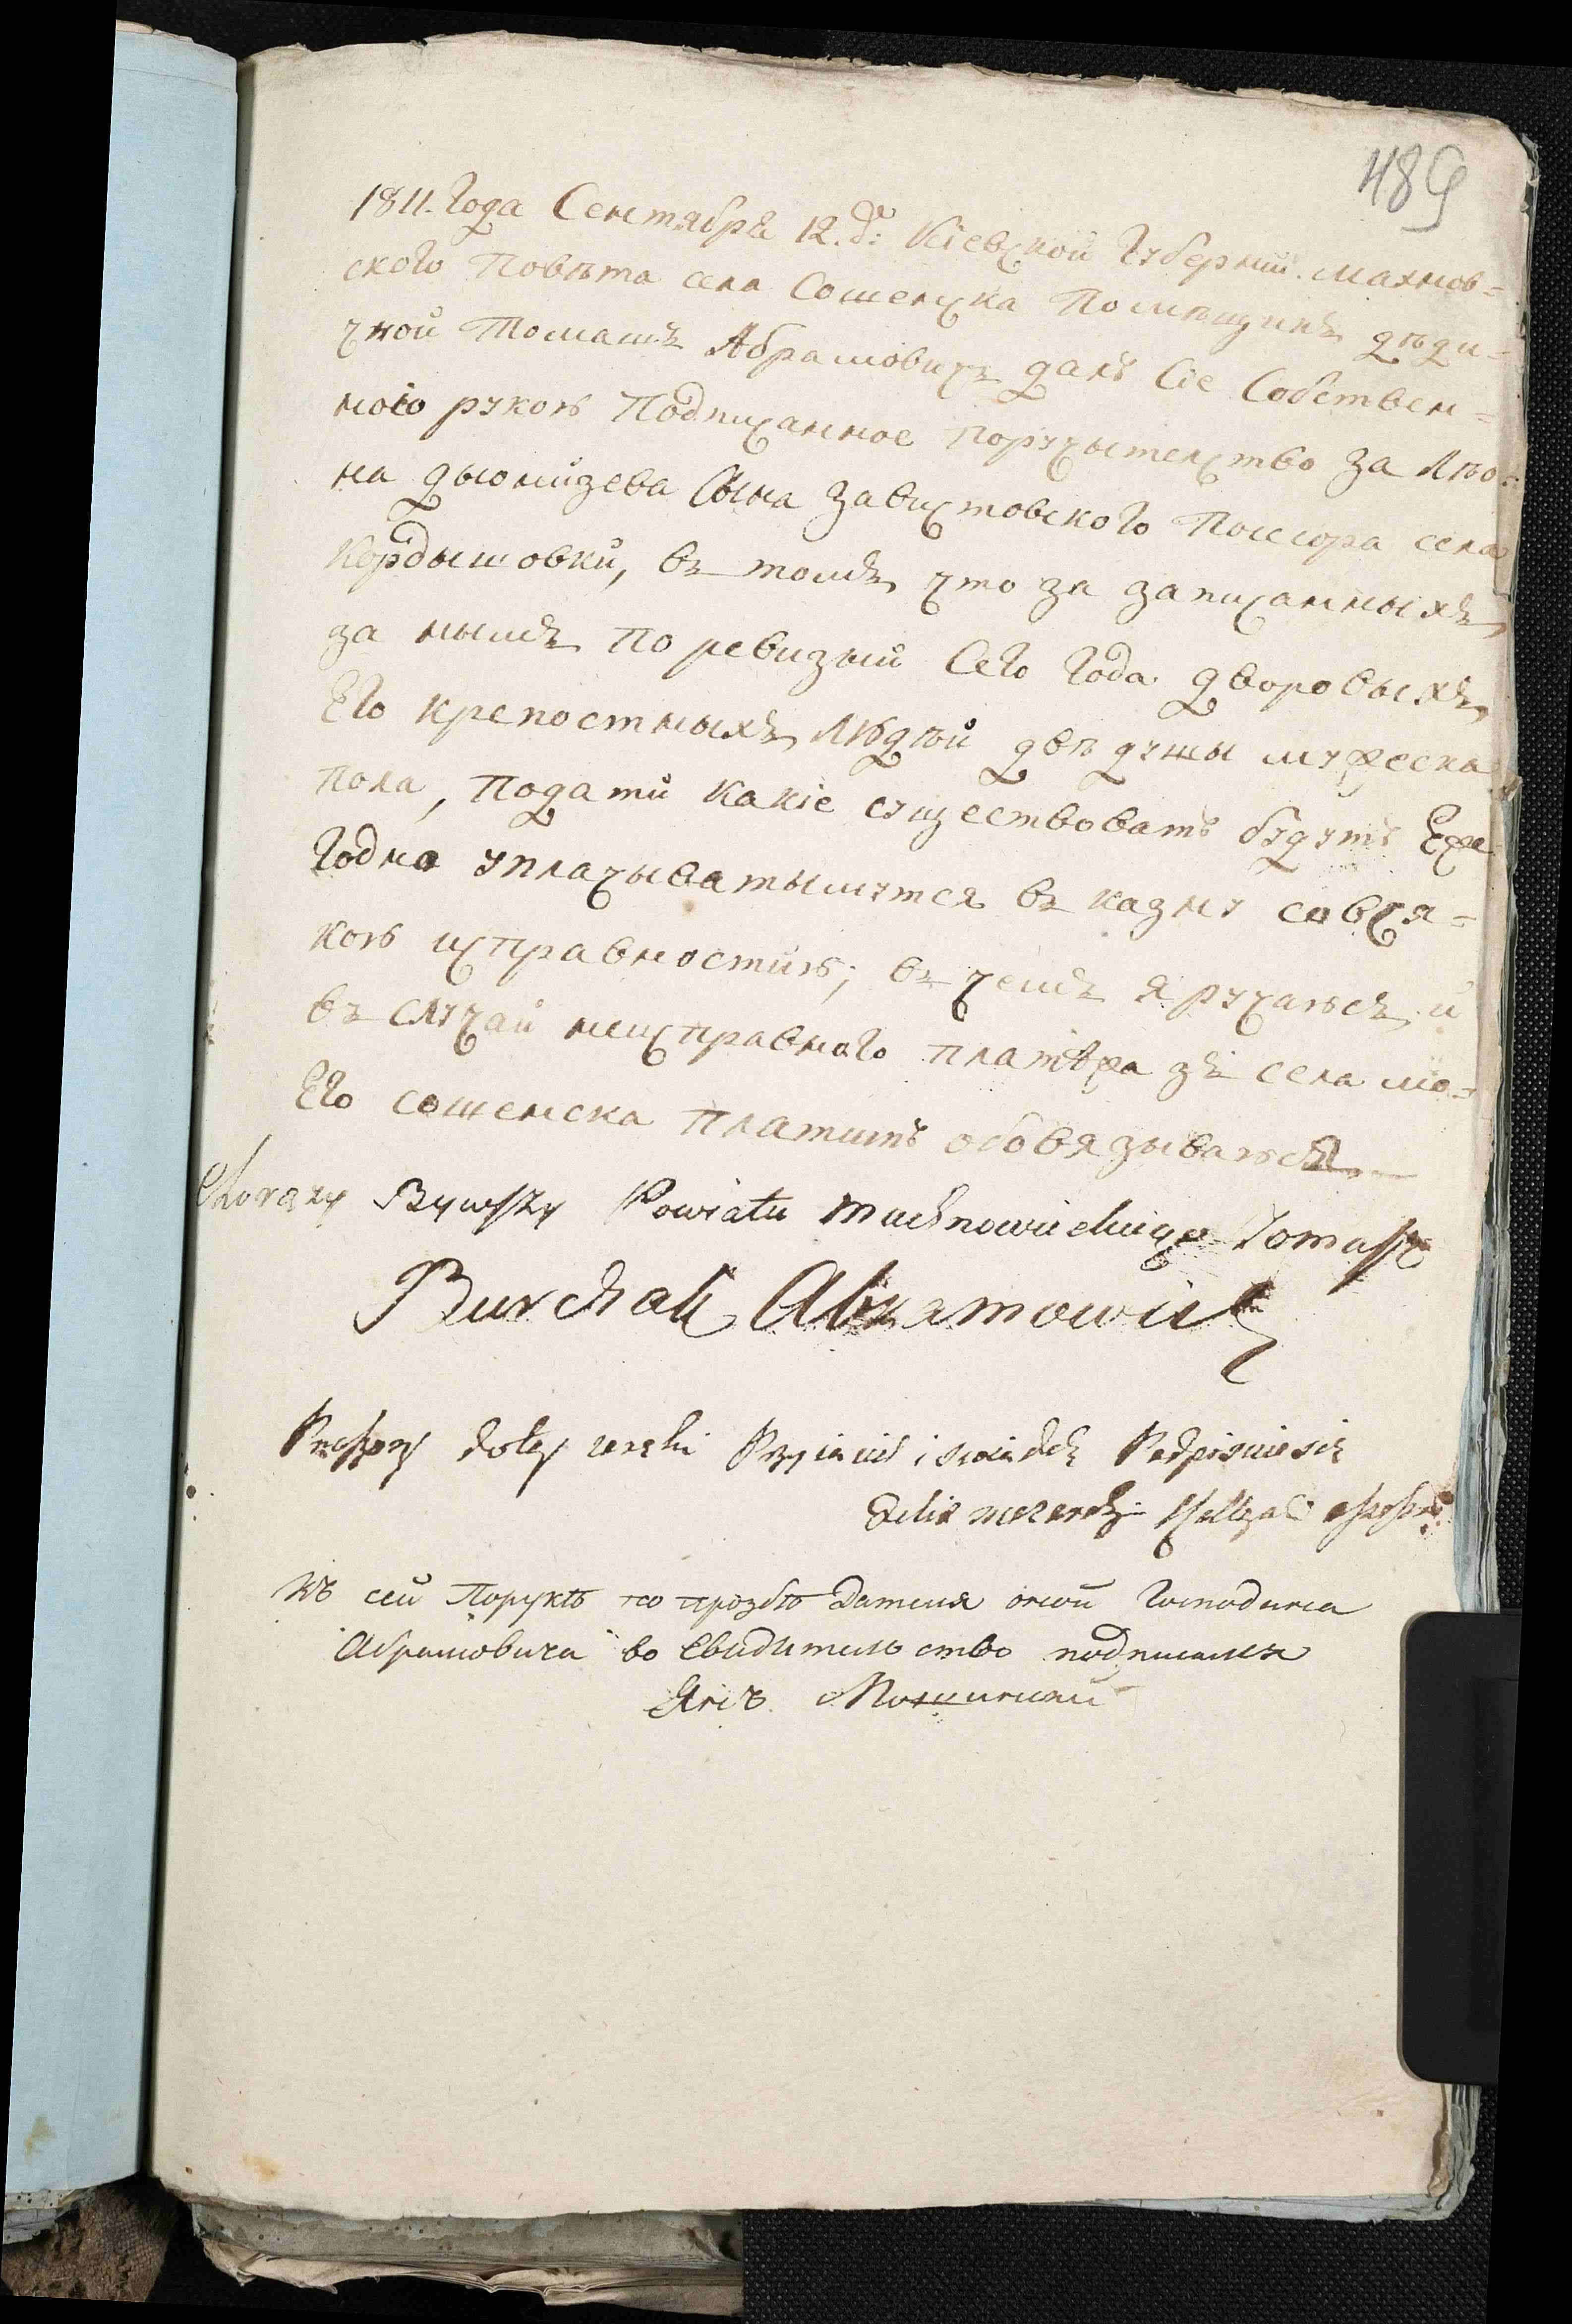 489
1811. Года Сентября 12. д: Кіевской Губерніи Махнов=
ского Повѣта села Сошенска Помѣщикъ дѣди=
чной Томашъ Абрамовичъ далъ Сіе Собствен=
ною рукою Подписанное поручытелство за Лѣо=
на Дыонизева Сына Завистовского Посесора села
Кордышовки, въ томъ что за записанныхъ
за нымъ по ревизыи Сего Года дворовыхъ
Его крепостныхъ людѣй двѣ душы мужеска
пола, подати какіе существовать будутъ Еже
Годно уплачыватымутся въ казну совся=
кою исправностию; въ чемъ я ручаюсь, и
въ случаи неисправного платежа зъ села мо=
Его сошенска платить обовязываюся
Chorąży Bywszy Powiatu Machnowieckiego Tomasz
Burchak Abramowicz
Proszony do tey ręki Przyiaciel i swiadek Podpisuie się
Felix
Къ сей Порукѣ по прозбѣ Дателя оной Господина
Абрамовича во Свидительство подписался
Янъ